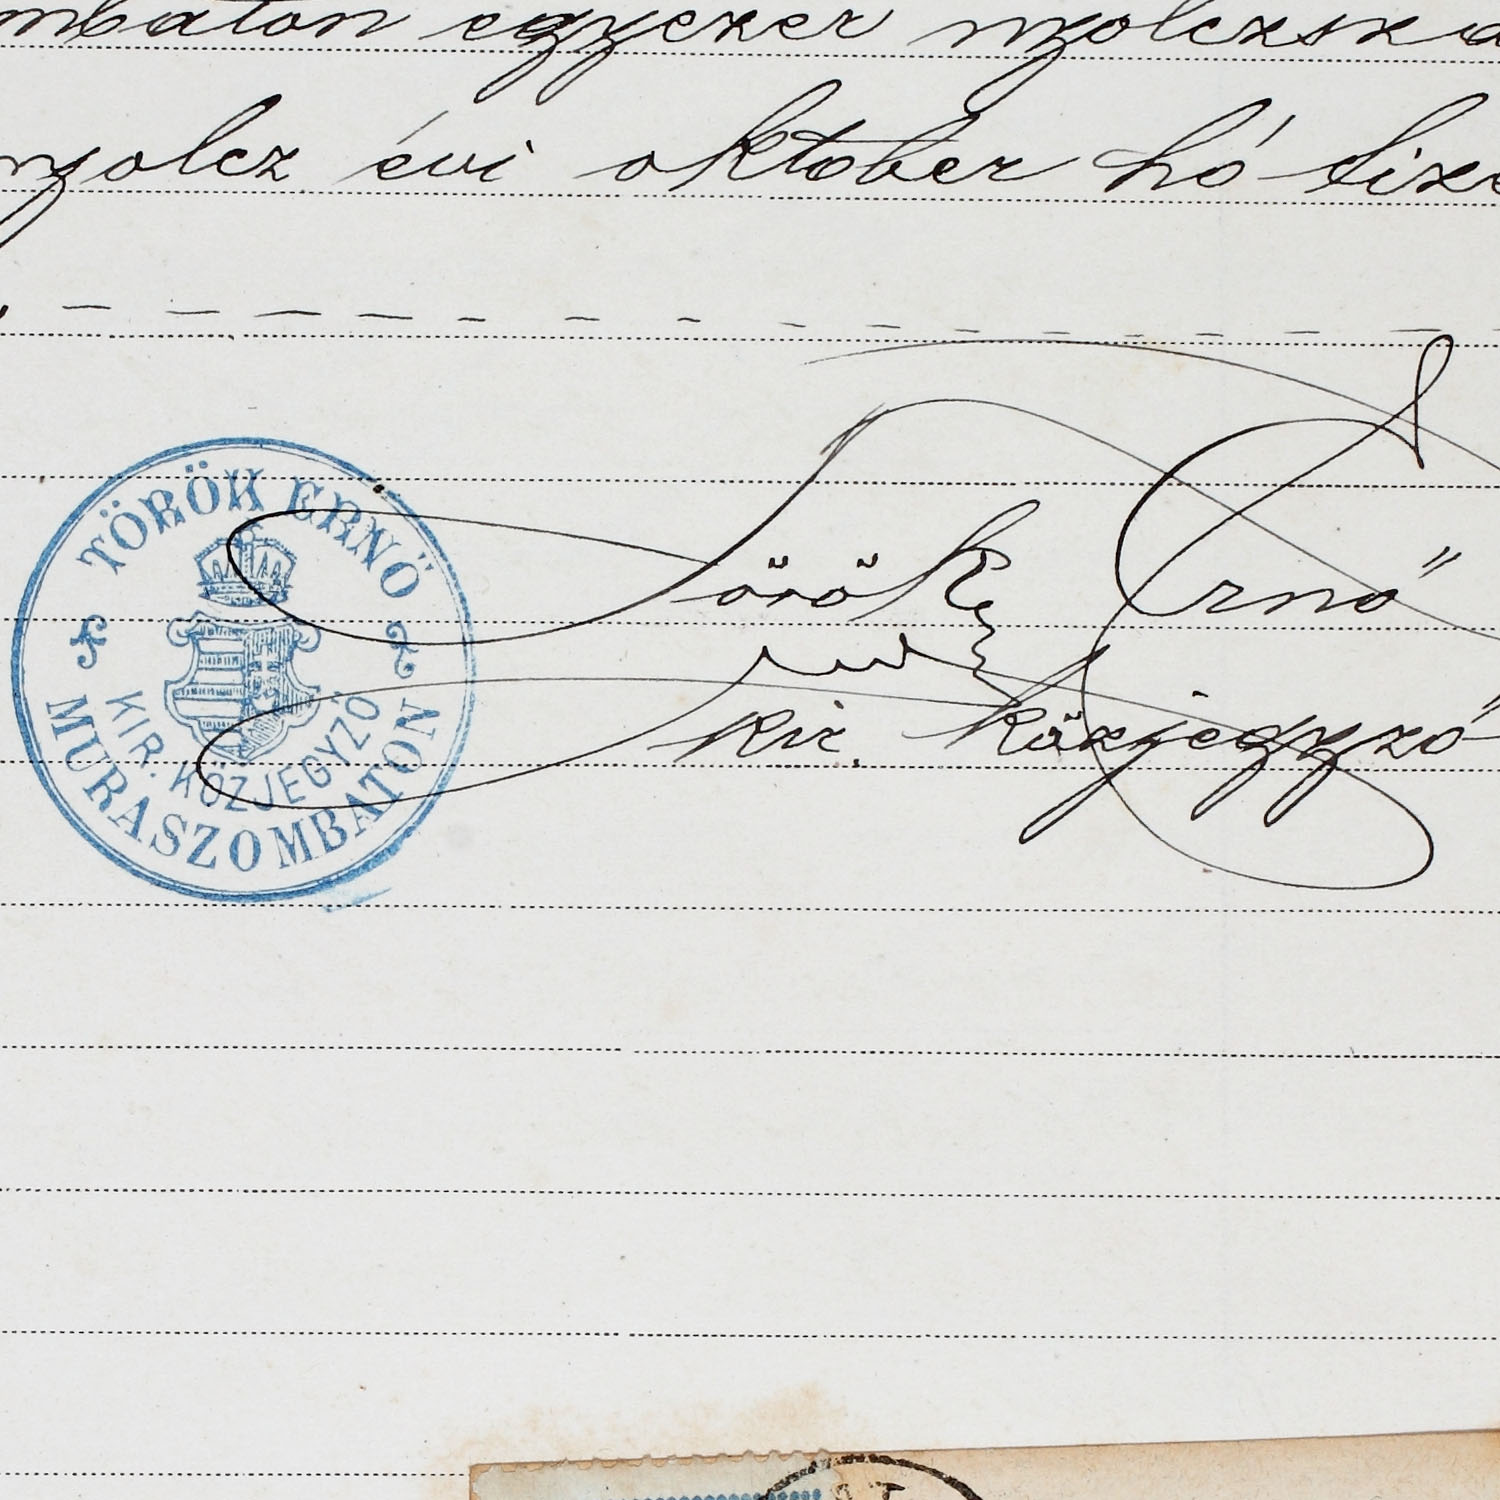 mbaton egyezer nyolczszá
nyolcz évi október hó tize
TÖRÖK ERNŐ
KIR. KÖZJEGYZŐ
MURASZOMBATON
Török Ernő
kir. közjegyző